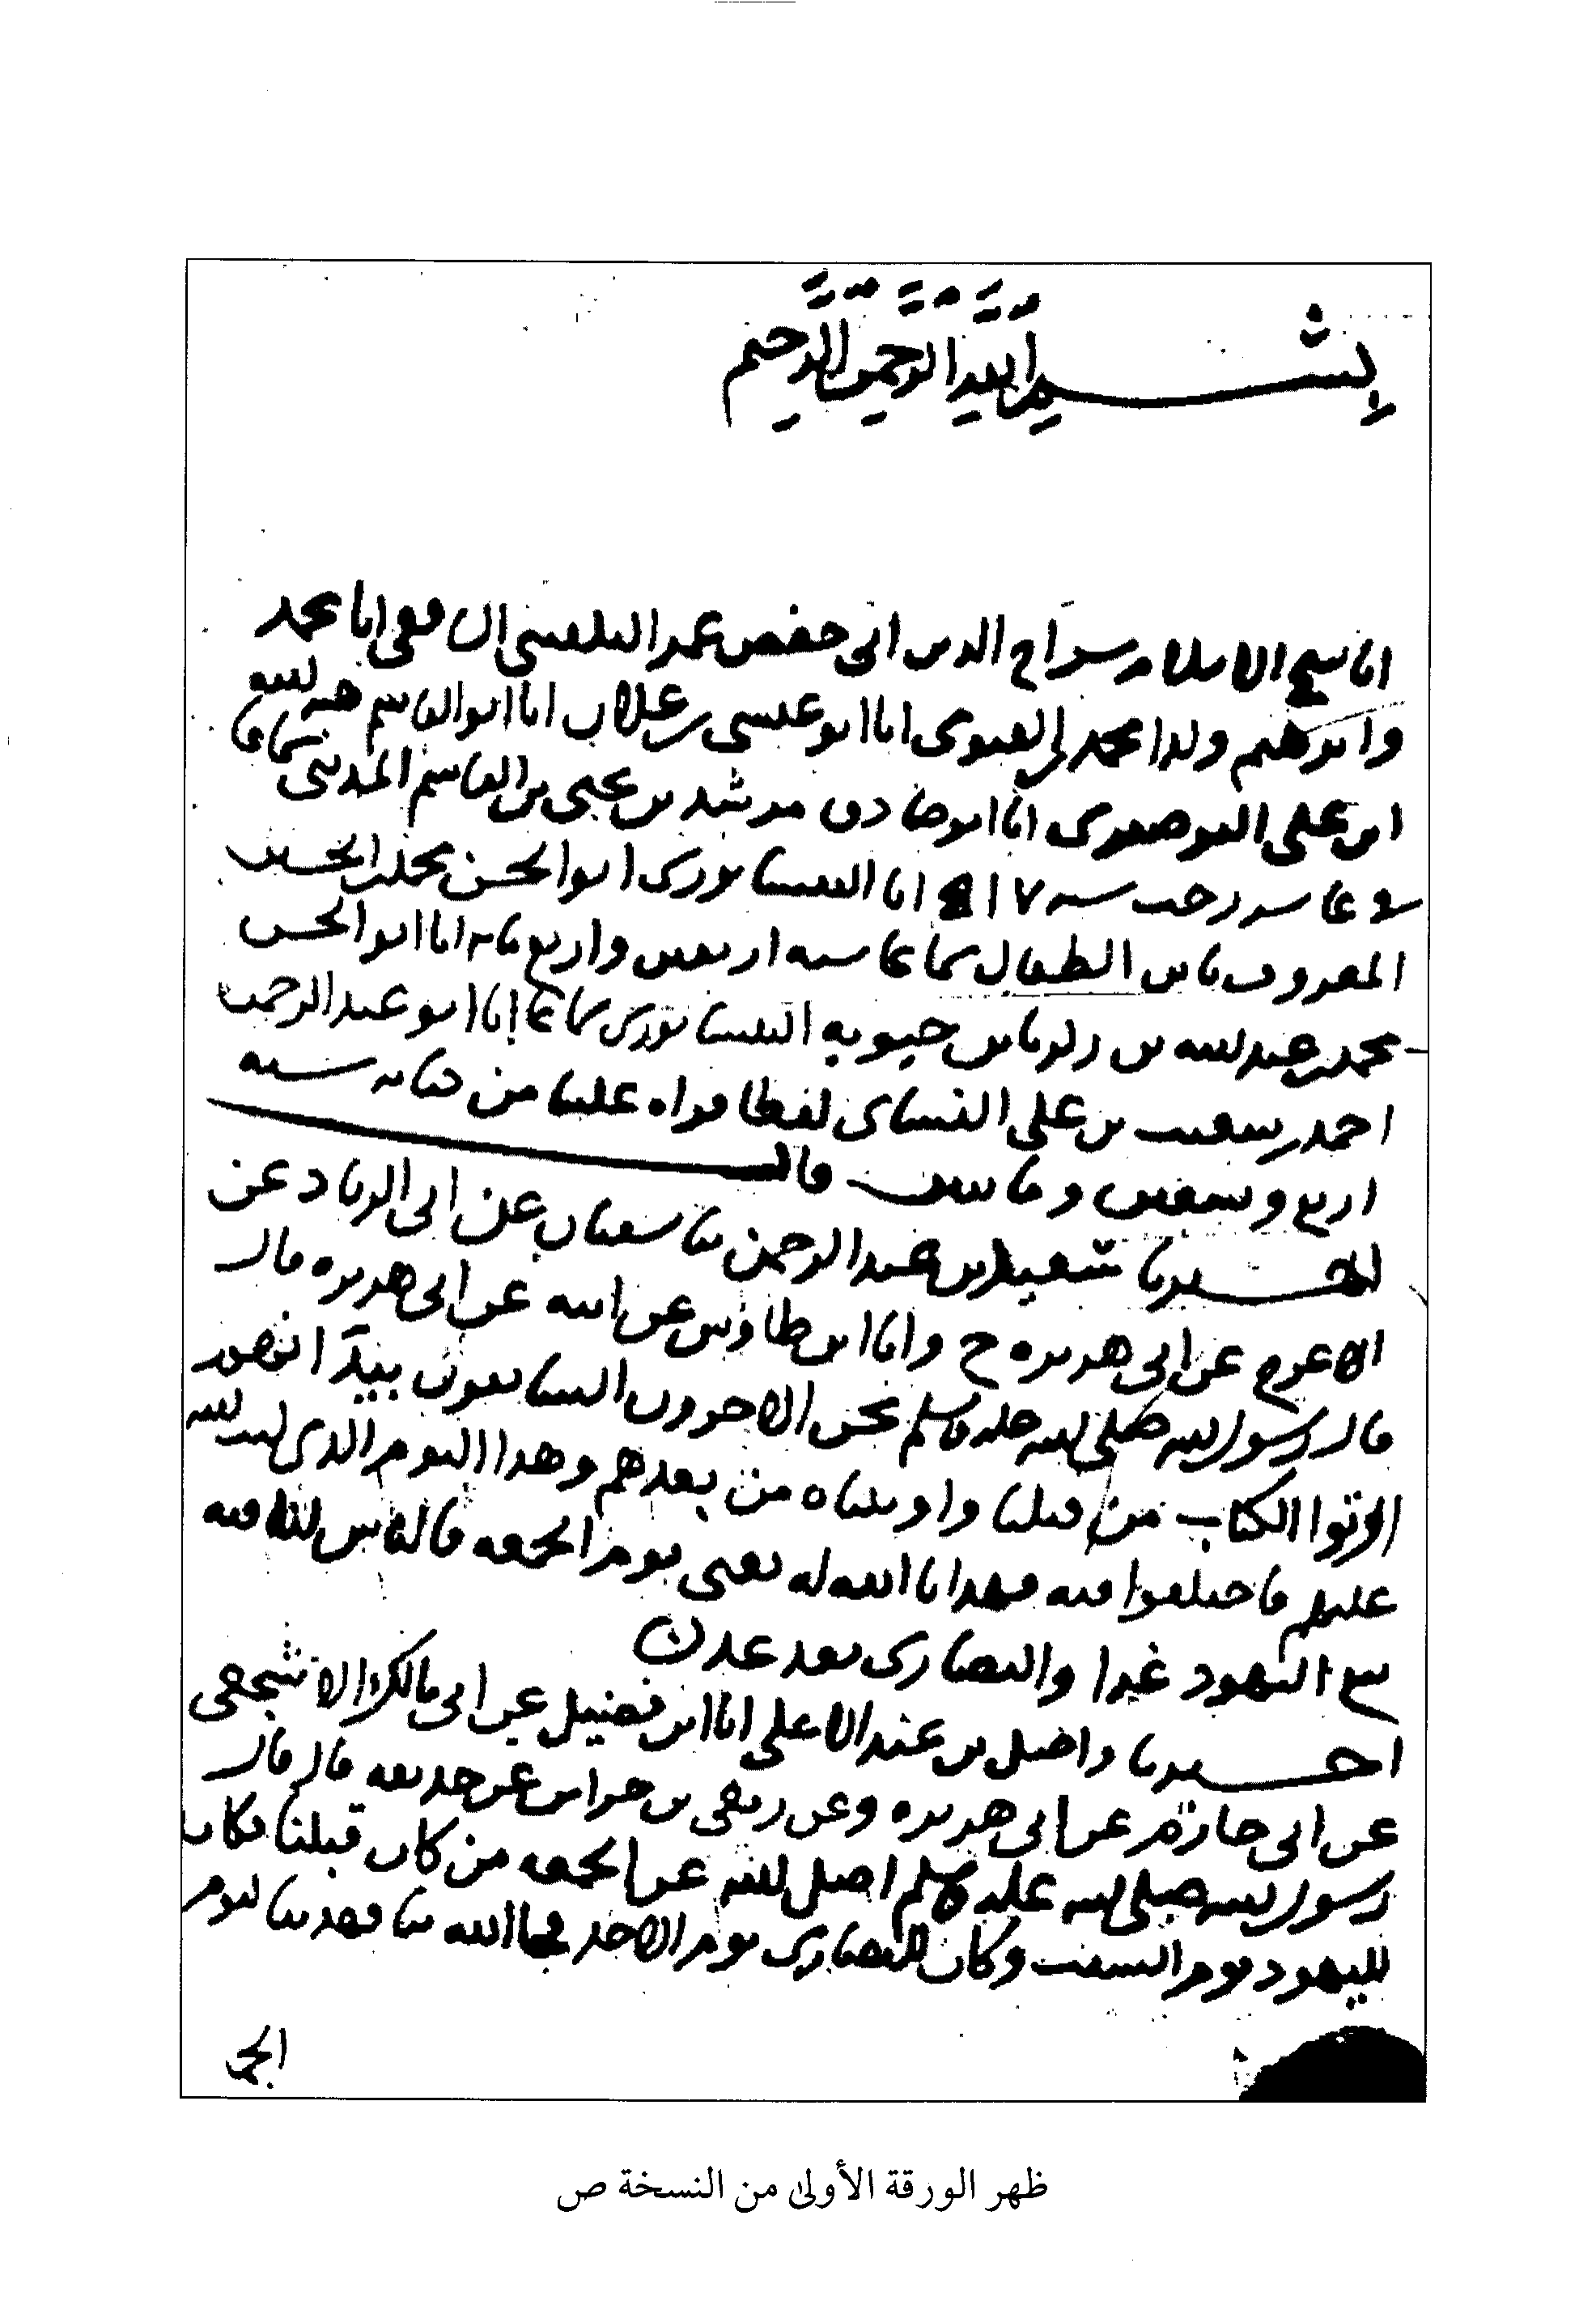 بسم الله الرحمن الرحيم
انا شيخ الاسلام سراج الدين ابي حفص عمر البلقيني انا محمد
وابرهيم ولدا محمد الفيومي انا ابو عيسى بن علاق انا ابو القاسم هبة الله
ابن علي البوصيري انا ابو صادق مرشد بن يحيى بن القاسم المديني
رجب سنه ٥١٧ انا النيسابوري ابو الحسن محمد بن الحسين
المعروف بابن الطفال سماعا سنه اربعين واربع مايه انا ابو الحسن
محمد بن عبد الله بن زكريا بن حيويه النيسابوري سماعا انا ابو عبد الرحمن
احمد بن شعيب بن علي النساي لفظا قراه علينا من كتابه سنه
اربع وتسعين ومايتين قال
اخبرنا سعيد بن عبد الرحمن ثنا سفيان عن ابي الزناد عن
الاعرج عن ابي هريره ح وانا ابن طاوس عن ابيه عن ابي هريره قال
قال رسول الله صلى الله عليه وسلم نحن الاخرون السابقون بيد انهم
اوتوا الكتاب من قبلنا واوتيناه من بعدهم وهذا اليوم الذي كتب الله
عليهم فاختلفوا فيه فهدانا الله له يعني يوم الجمعه فالناس لنا فيه
تبع اليهود غدا والنصارى بعد غد
اخبرنا واصل بن عبد الاعلى انا ابن فضيل عن ابي مالك الاشجعي
عن ابي حازم عن ابي هريره وعن ربعي بن حراش عن حذيفه قال قال
رسول الله صلى الله عليه وسلم اضل الله عن الجمعه من كان قبلنا فكان
لليهود يوم السبت وكان للنصارى يوم الاحد فجا الله بنا فهدينا ليوم
الجمـ
ظهر الورقة الأولى من النسخة ص